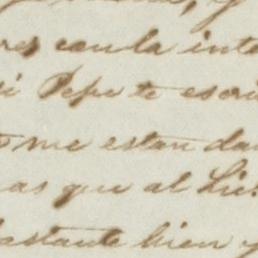 con la inte
Pepe te escri
me estan da
as que al Lic.
bastante bien y